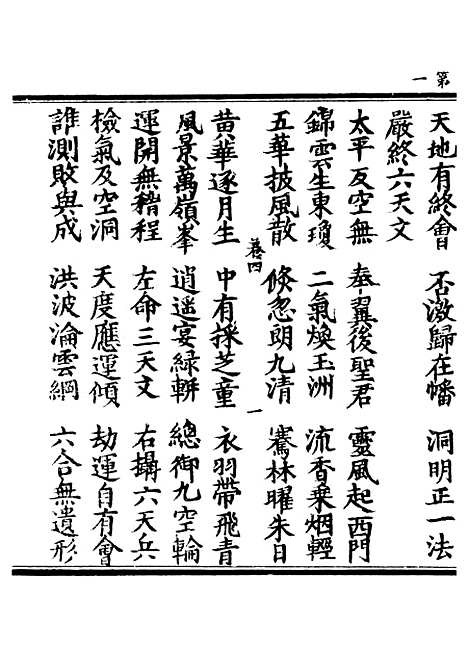 第一
天地有終會　否激歸在幡　洞明正一法
嚴終六天文
太平反空無　奉翼後聖君　靈風起西門
錦雲生東瓊　二氣煥玉洲　流香乗烟輕
五華披風散　倐忽朗九清　騫林曜朱日
卷四　一
黄華逐月生　中有採芝童　衣羽帶飛青
風景萬嶺峯　逍遥宴緑軿　總御九空輪
運開無稽程　左命三天文　右攝六天兵
檢氣及空洞　天度應運傾　劫運自有會
誰測敗與成　洪波淪雲綱　六合無遺形